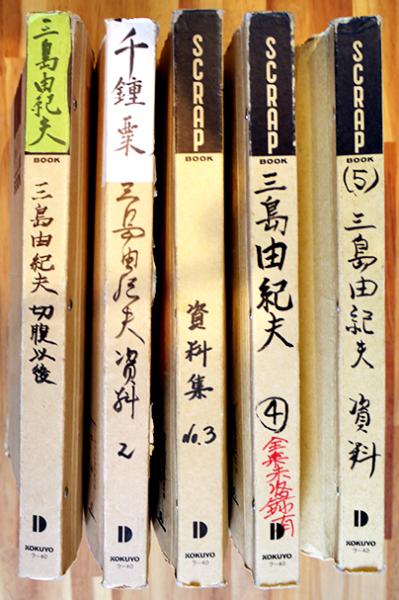 三島由紀夫
BOOK
三島由紀夫 切腹以後
D
KOKUYO
ラ-40
千鍾粟
三島由紀夫資料 2
D
KOKUYO
ラ-40
SCRAP
BOOK
資料集
No.3
D
KOKUYO
ラ-40
SCRAP
BOOK
三島由紀夫
④
D
KOKUYO
ラ-40
SCRAP
BOOK
(5) 三島由紀夫 資料
D
KOKUYO
ラ-40